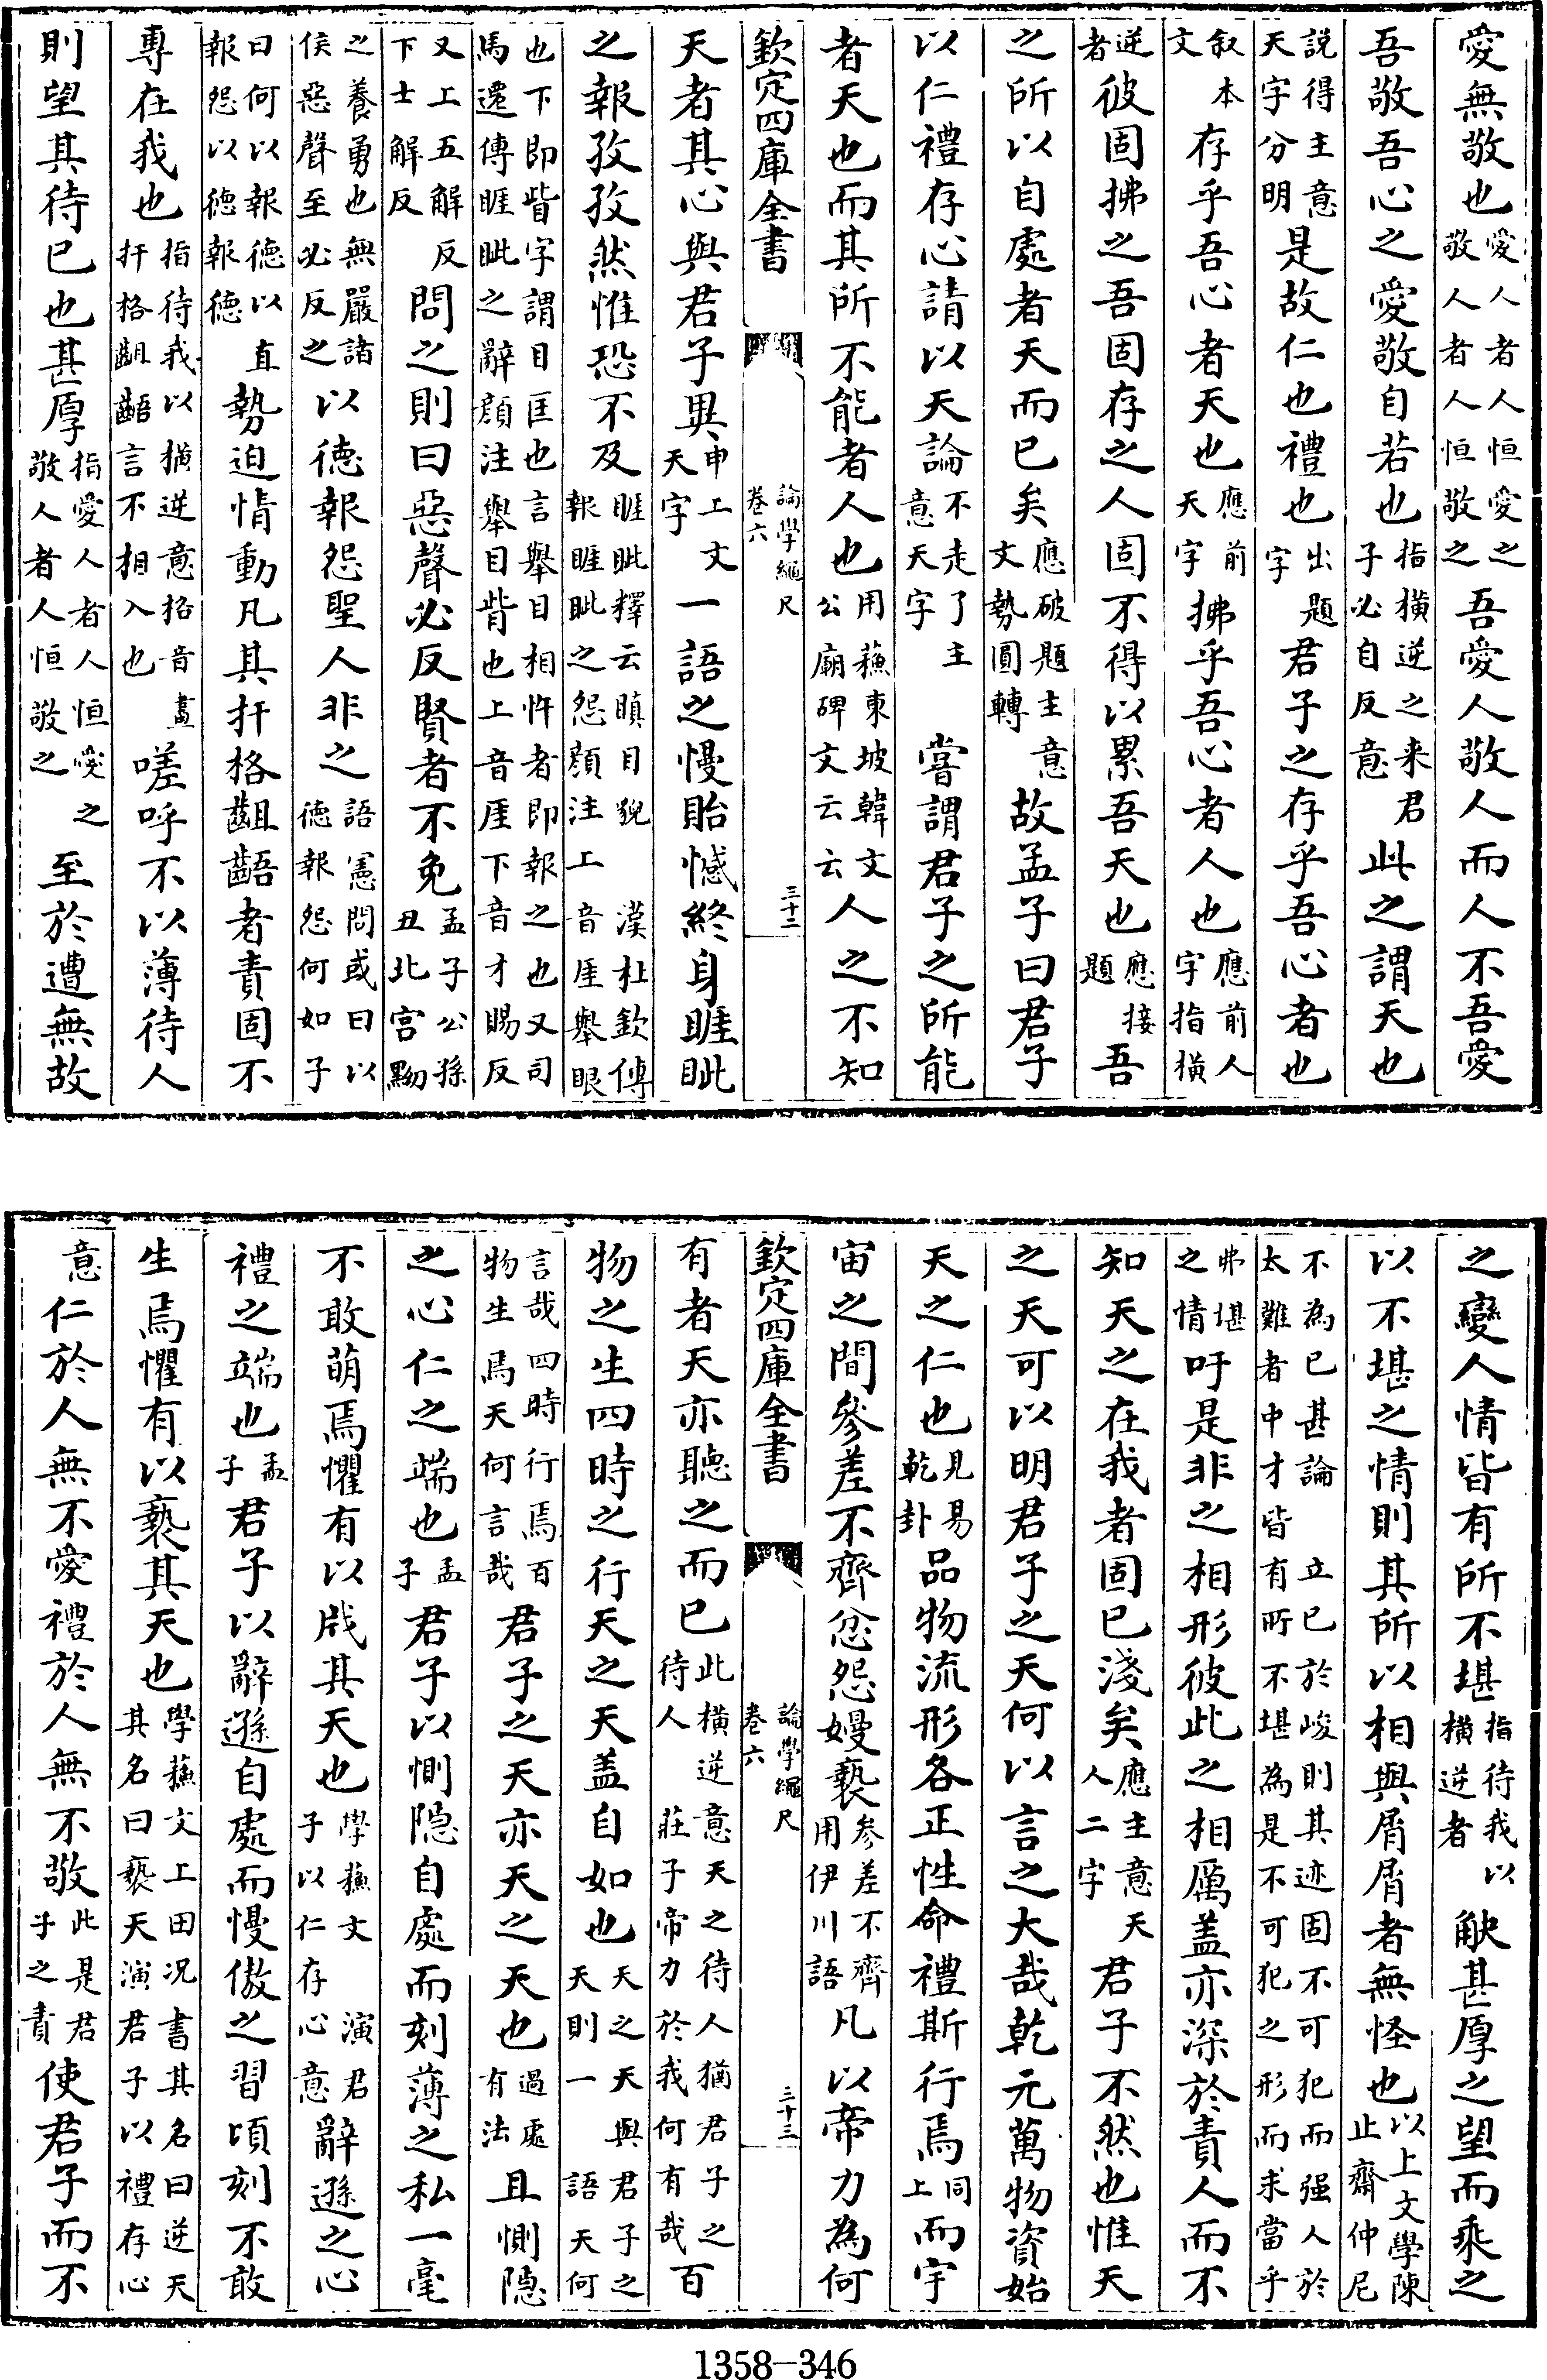 愛無敬也愛人者人恒愛之敬人者人恒敬之吾愛人敬人而人不吾愛
吾敬吾心之愛敬自若也指橫逆之来君子必自反意此之謂天也
説得主意天字分明是故仁也禮也出題字君子之存乎吾心者也
叙本文存乎吾心者天也應前天字拂乎吾心者人也應前人字指橫
逆者彼固拂之吾固存之人固不得以累吾天也應接題吾
之所以自處者天而已矣應破題主意文勢圓轉故孟子曰君子
以仁禮存心請以天論不走了主意天字嘗謂君子之所能
者天也而其所不能者人也用蘇東坡韓文公廟碑文云云人之不知
欽定四庫全書 論學繩尺 卷六 三十二
天者其心與君子異申上文天字一語之慢貽憾終身睚眦
之報孜孜然惟恐不及睚眦釋云瞋目貌漢杜欽傳報睚眦之怨顔注上音厓舉眼
也下即眥字謂目匡也言舉目相忤者即報之也又司馬遷傳睚眦之辭顔注舉目眥也上音厓下音才賜反
又上五解反下士解反問之則曰惡聲必反賢者不免孟子公孫丑北宮黝
之養勇也無嚴諸侯惡聲至必反之以德報怨聖人非之語憲問或曰以德報怨何如子
曰何以報德以直報怨以德報德勢迫情動凡其扞格齟齬者責固不
專在我也指待我以橫逆意招音畫扞格齟齬言不相入也嗟呼不以薄待人
則望其待已也甚厚指愛人者人恒愛之敬人者人恒敬之至於遭無故
之變人情皆有所不堪指待我以橫逆者觖甚厚之望而乘之
以不堪之情則其所以相與屑屑者無怪也以上文學陳止齋仲尼
不為已甚論立已於峻則其迹固不可犯而强人於太難者中才皆有所不堪為是不可犯之形而求當乎
弗堪之情吁是非之相形彼此之相厲盖亦深於責人而不
知天之在我者固已淺矣應主意天人二字君子不然也惟天
之天可以明君子之天何以言之大哉乾元萬物資始
天之仁也見易乾卦品物流形各正性命禮斯行焉同上而宇
宙之間參差不齊忿怨嫚褻参差不齊用伊川語凡以帝力為何
欽定四庫全書 論學繩尺 卷六 三十三
有者天亦聽之而已此橫逆意天之待人猶君子之待人莊子帝力於我何有哉百
物之生四時之行天之天盖自如也天之天與君子之天則一語天何
言哉四時行焉百物生焉天何言哉君子之天亦天之天也過處有法且惻隠
之心仁之端也孟子君子以惻隠自處而刻薄之私一毫
不敢萌焉懼有以戕其天也學蘇文演君子以仁存心意辭遜之心
禮之端也孟子君子以辭遜自處而慢傲之習頃刻不敢
生焉懼有以褻其天也學蘇文上田况書其名曰逆天其名曰褻天演君子以禮存心
意仁於人無不愛禮於人無不敬此是君子之責使君子而不
1358-346